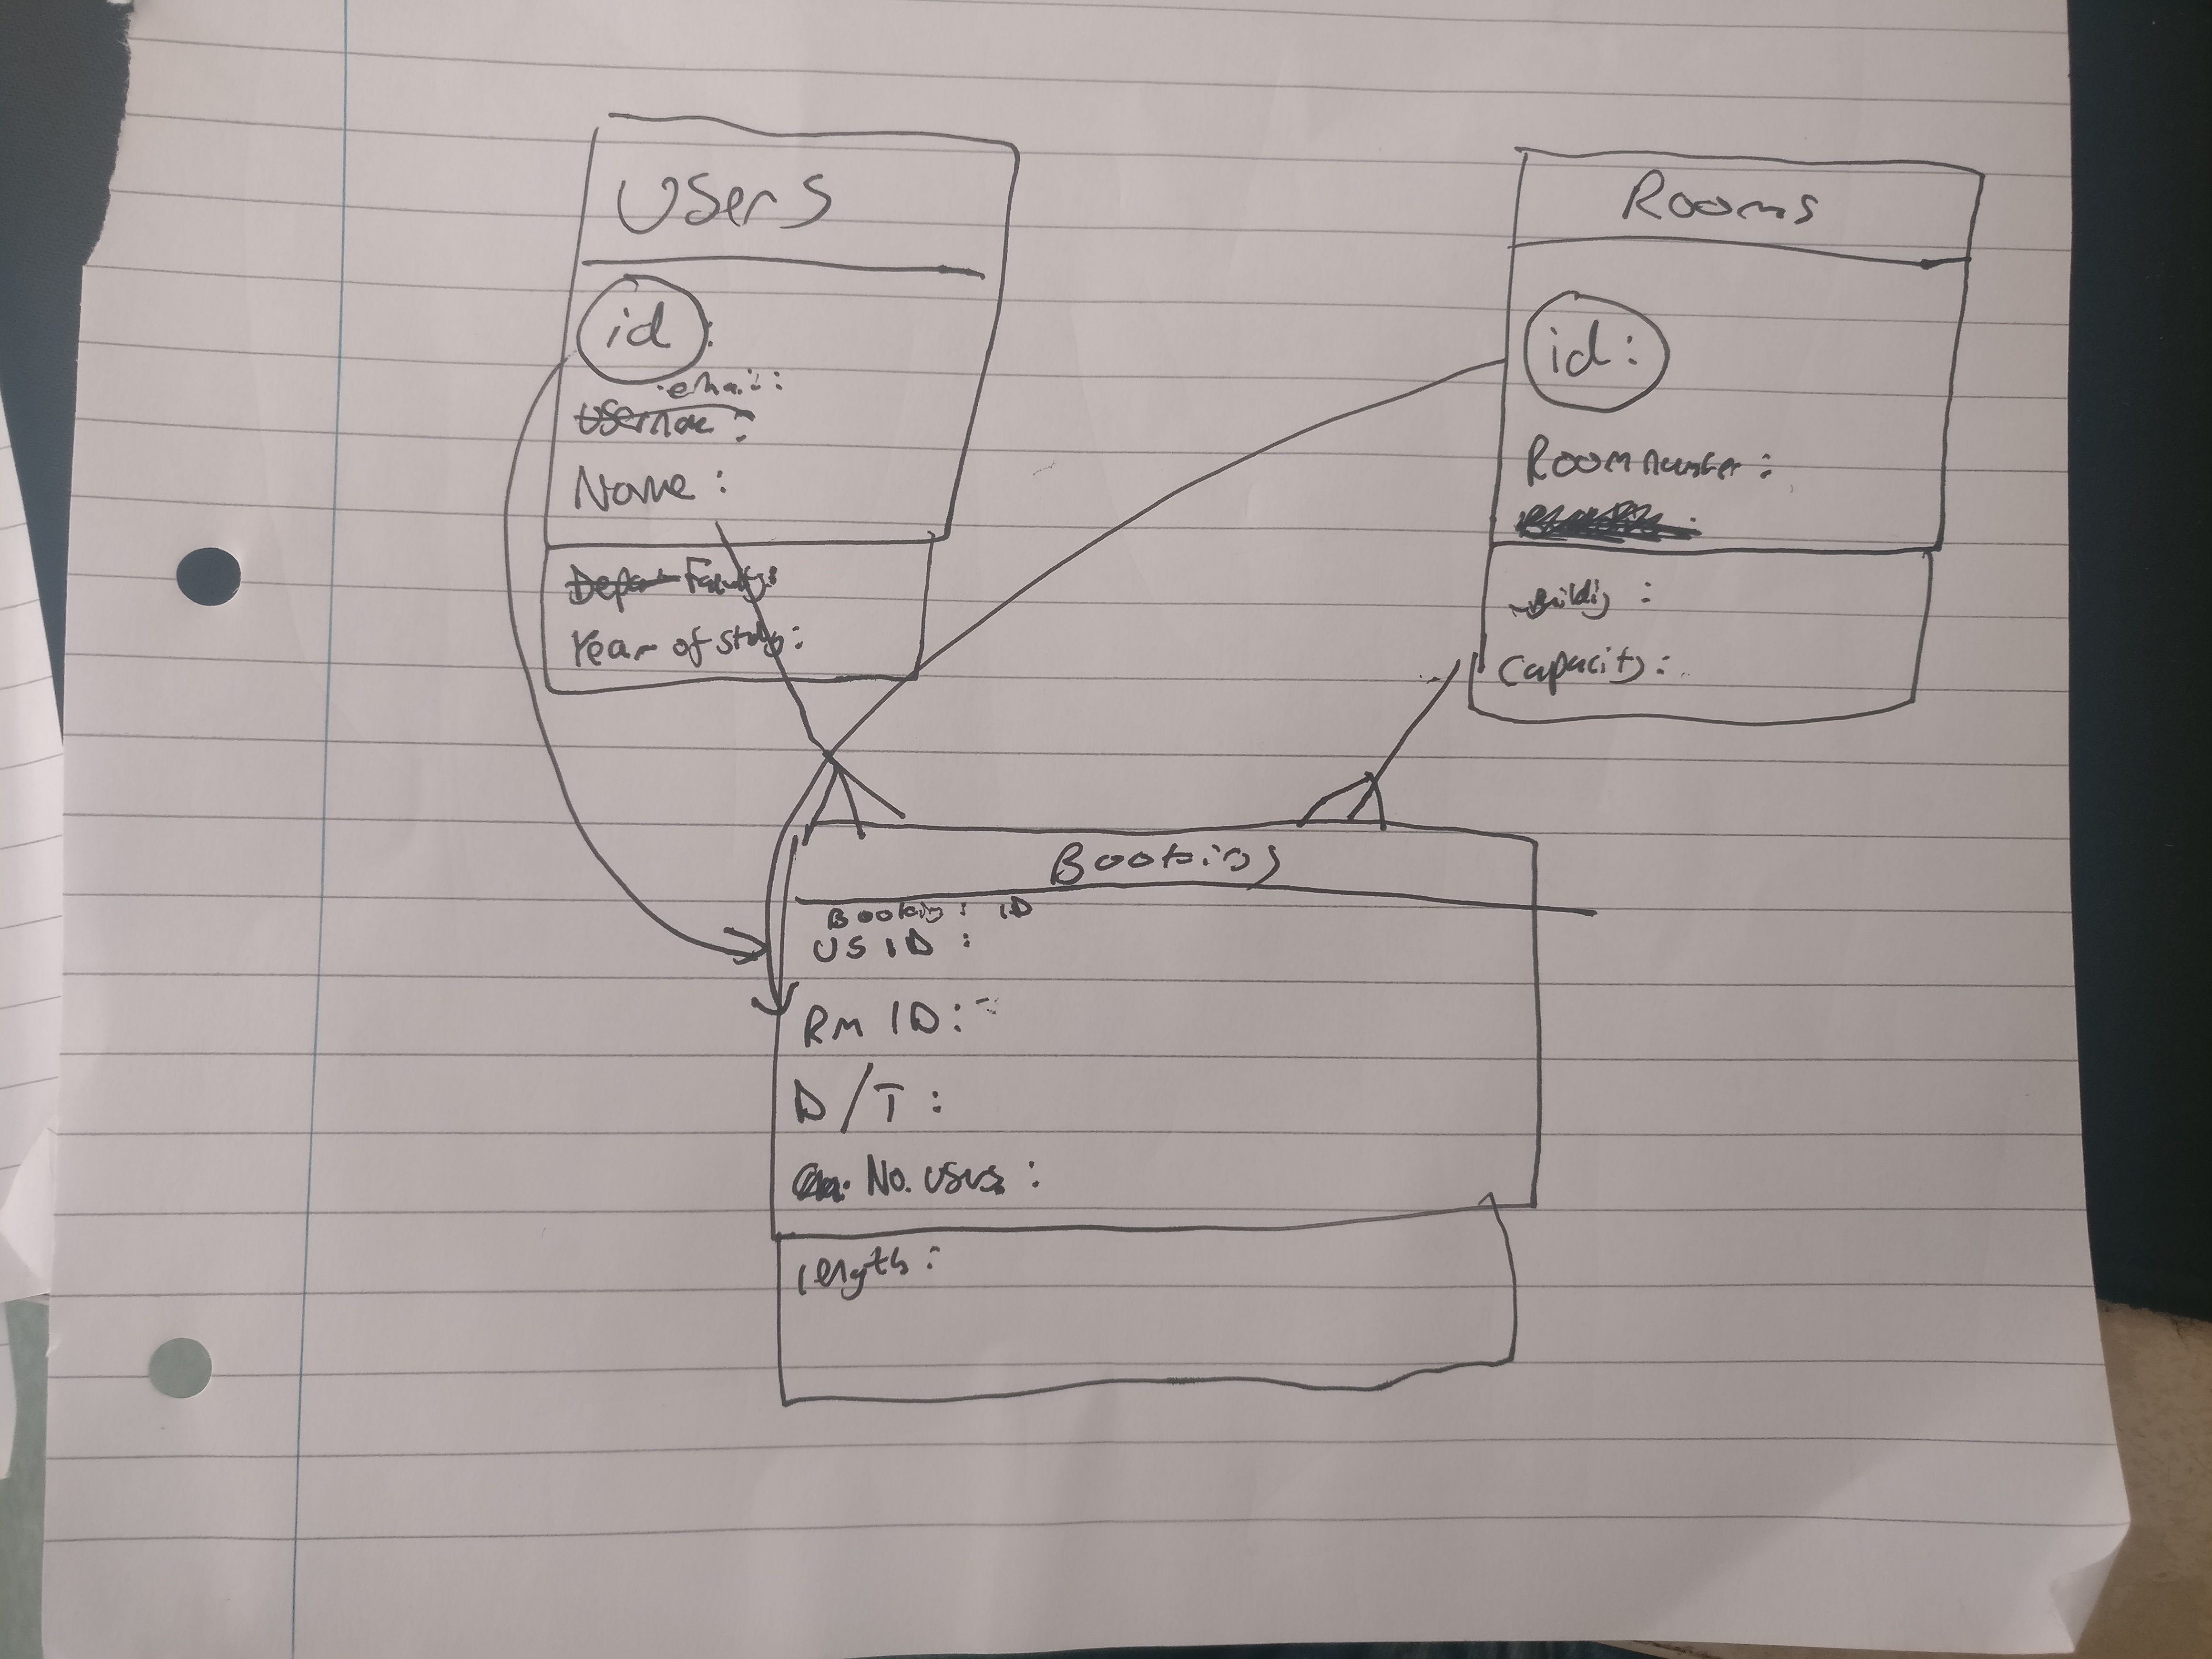 Users
id:
email:
Username:
Name:
Depart Faculty:
Year of study:
Rooms
id:
Room number:
Building:
Capacity:
Bookings
Booking: ID
US ID:
Rm ID:
D/T:
No. users:
length: